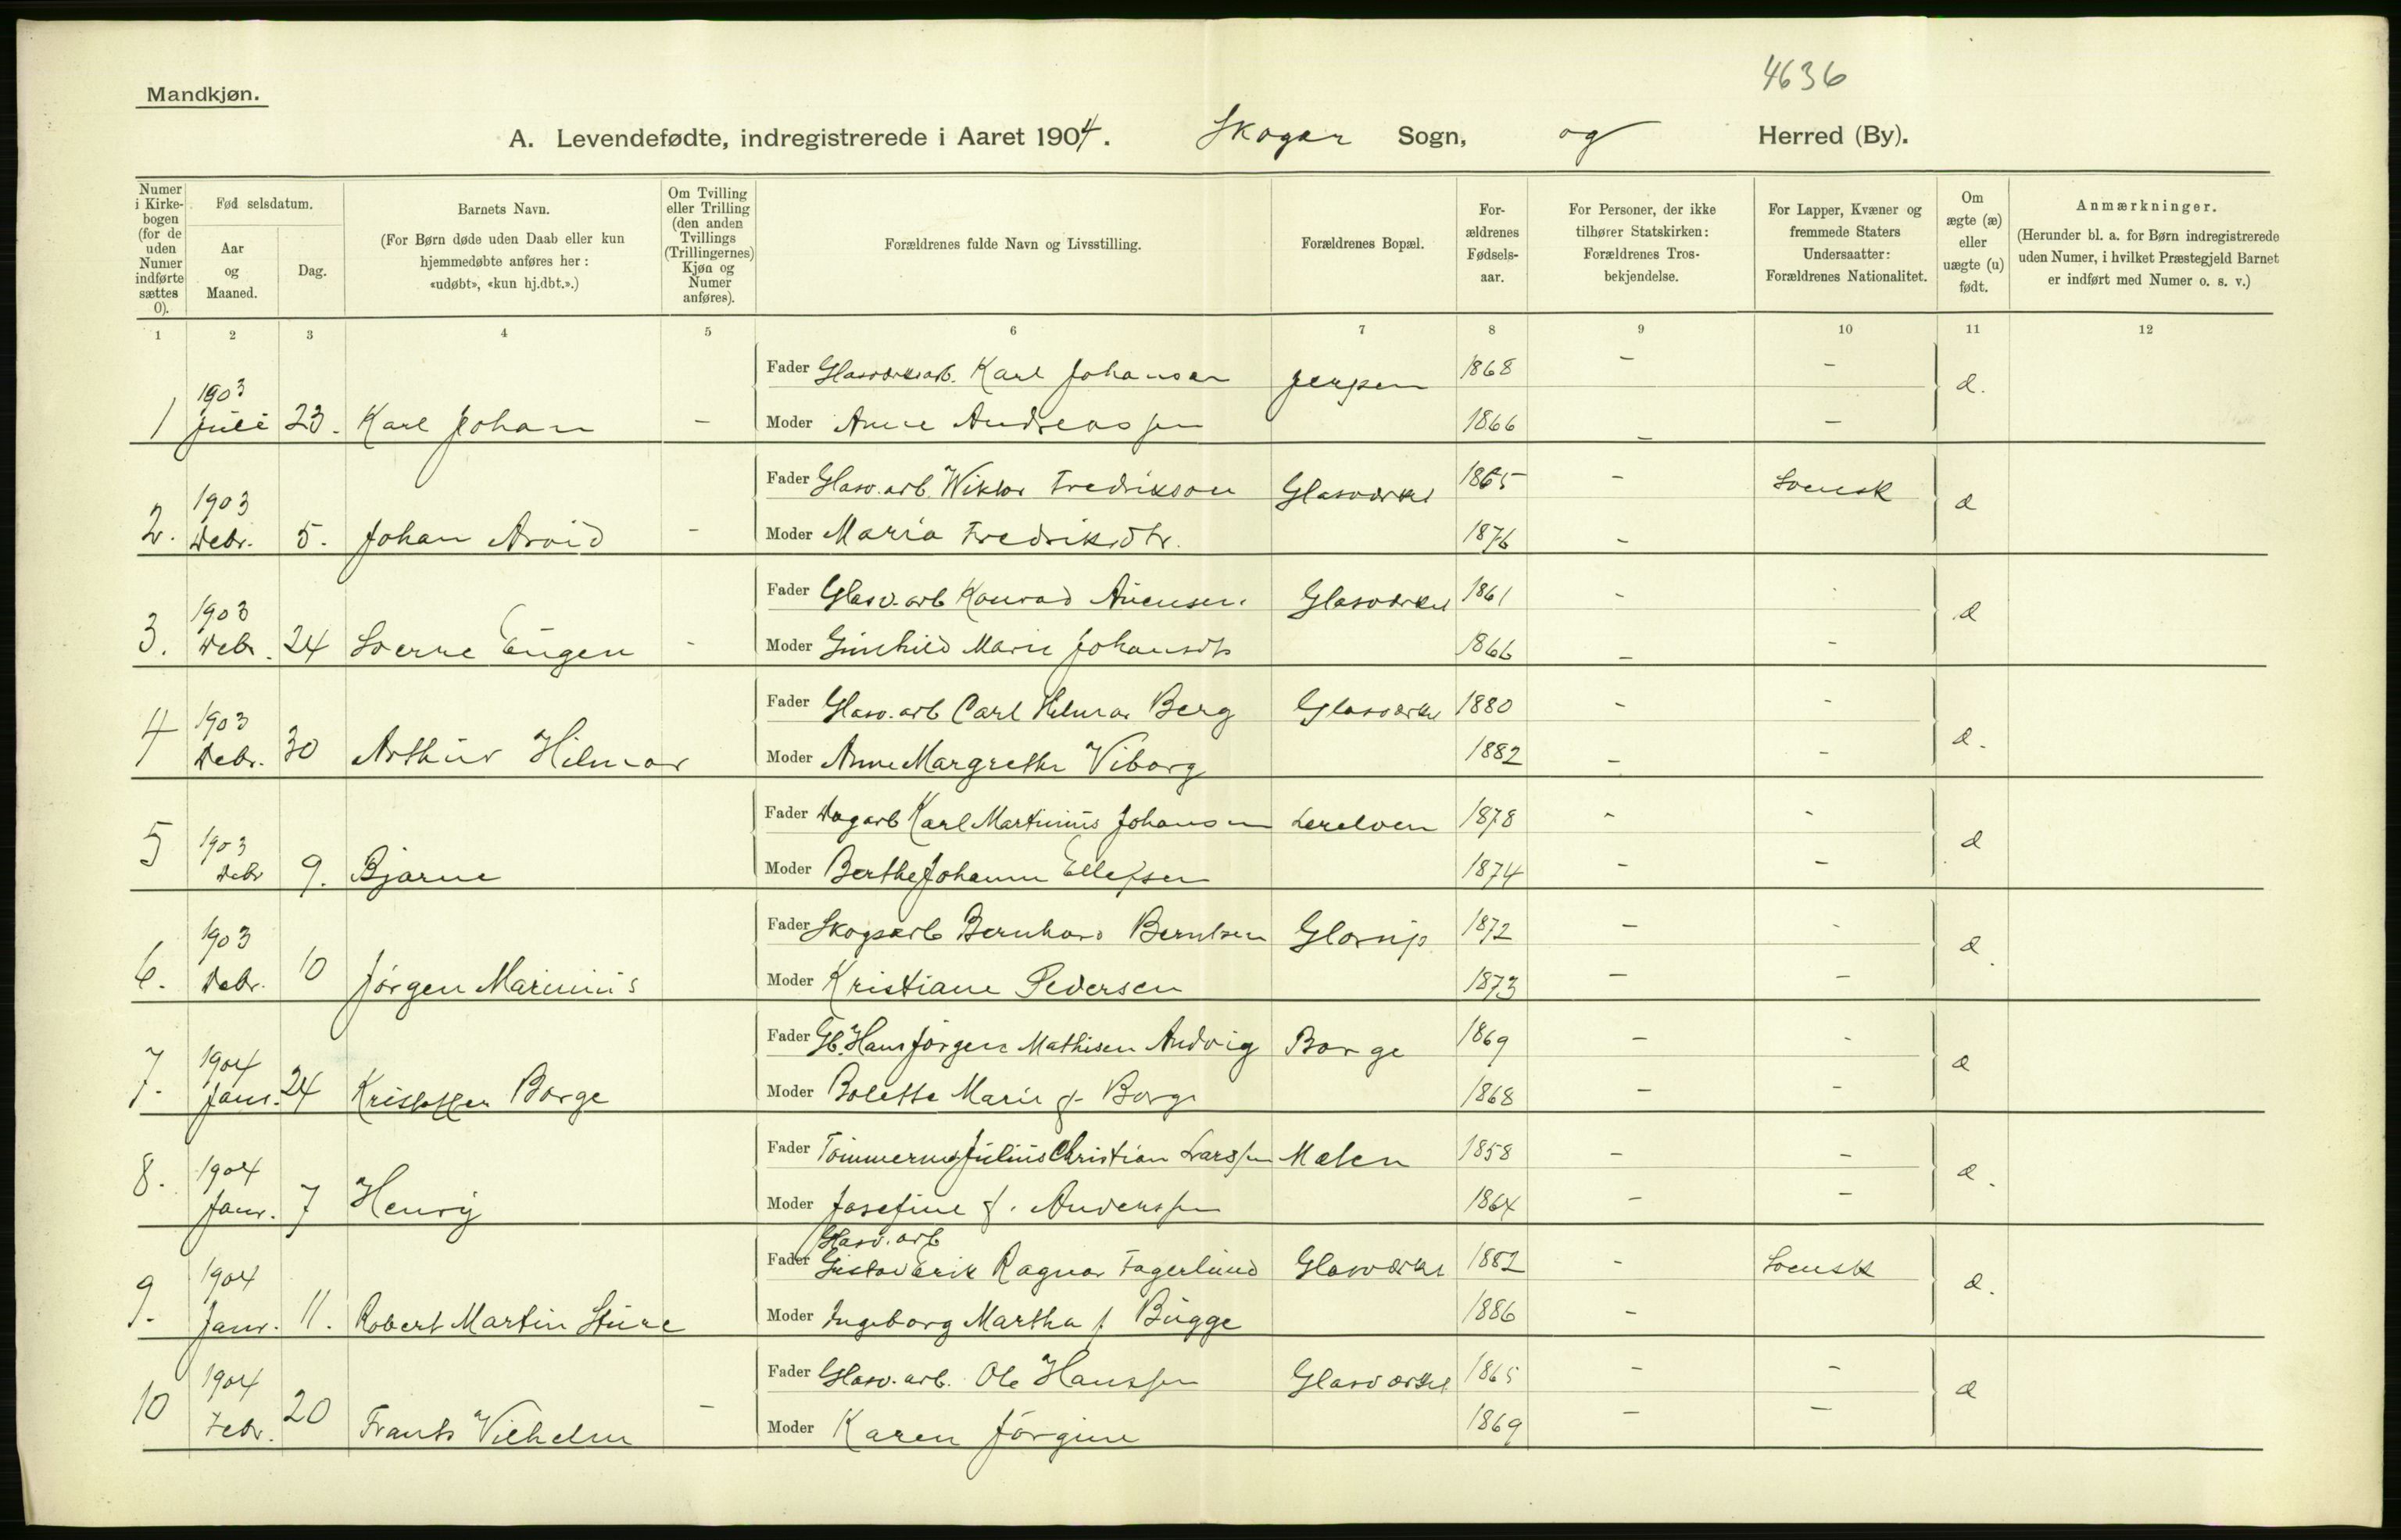 4636
Mandkjøn.
A. Levendefødte, indregistrerede i Aaret 1904. Skoger Sogn, og Herred (By).
Numer i Kirkebogen (for de uden Numer indførte sættes 0).
Fød selsdatum.
Aar og Maaned.
Dag.
Barnets Navn.
(For Børn døde uden Daab eller kun hjemmedøbte anføres her: «udøbt», «kun hj.dbt.».)
Om Tvilling eller Trilling (den anden Tvillings (Trillingernes) Kjøn og Numer anføres).
Forældrenes fulde Navn og Livsstilling.
Forældrenes Bopæl.
For-ældrenes Fødsels-aar.
For Personer, der ikke tilhører Statskirken: Forældrenes Tros-bekjendelse.
For Lapper, Kvæner og fremmede Staters Undersaatter: Forældrenes Nationalitet.
Om ægte (æ) eller uægte (u) født.
Anmærkninger.
(Herunder bl. a. for Børn indregistrerede uden Numer, i hvilket Præstegjeld Barnet er indført med Numer o. s. v.)
1 2 3 4 5 6 7 8 9 10 11 12
Fader Glasværksarb. Karl Johansen Jerpen 1868 - - æ.
1 1903 Juli 23. Karl Johan - Moder Anne Andreassen 1866 - -
Fader Glasv. arb. Wiktor Fredrikson Glasværket 1865 - Svensk æ
2. 1903 Debr. 5. Johan Arvid - Moder Maria Fredriksdtr. 1876 -
Fader Glasv. arb Konrad Glasværket 1861 - - æ
3. 1903 Debr. 24 Sverre Eugen - Moder Gunhild Marie Johansdtr 1866 - -
Fader Glasv. arb Carl Hilmar Berg Glasværket 1880 - - æ.
4 1903 Debr. 30 Arthur Hilmar Moder Anne Margrethe Viborg 1882 - -
Fader Dagarb Karl Martinius Johansen Lerelven 1878 - - æ
5 1903 Debr 9. Bjarne Moder Berthe Johanne Ellefsen 1874 - -
Fader Skogsarb Bernhard Berntsen Glorup 1872 - - æ.
6. 1903 Debr. 10 Jørgen Marinius Moder Kristiane Pedersen 1873 - -
Fader Gb. Hans Jørgen Mathisen Andvig Borge 1869 - - æ
7. 1904 Janr. 24 Kristoffer Borge Moder Bolette Marie f. Borge 1868 - -
Fader Julius Christian Larssen Mælen 1858 - - æ.
8. 1904 Janr. 7 Henry Moder Josefine f. Anderssen 1864 - -
Glasv. arb
Fader Gustav Erik Ragnar Fagerlund Glasværket 1882 - Svensk æ.
9. 1904 Janr. 11. Robert Martin Sture Moder Ingeborg Martha f Bugge 1886 -
Fader Glasv. arb. Ole Hanssen Glasværket 1865 - - æ
10 1904 Febr. 20 Frants Vilhelm - Moder Karen Jørgine 1869 - -